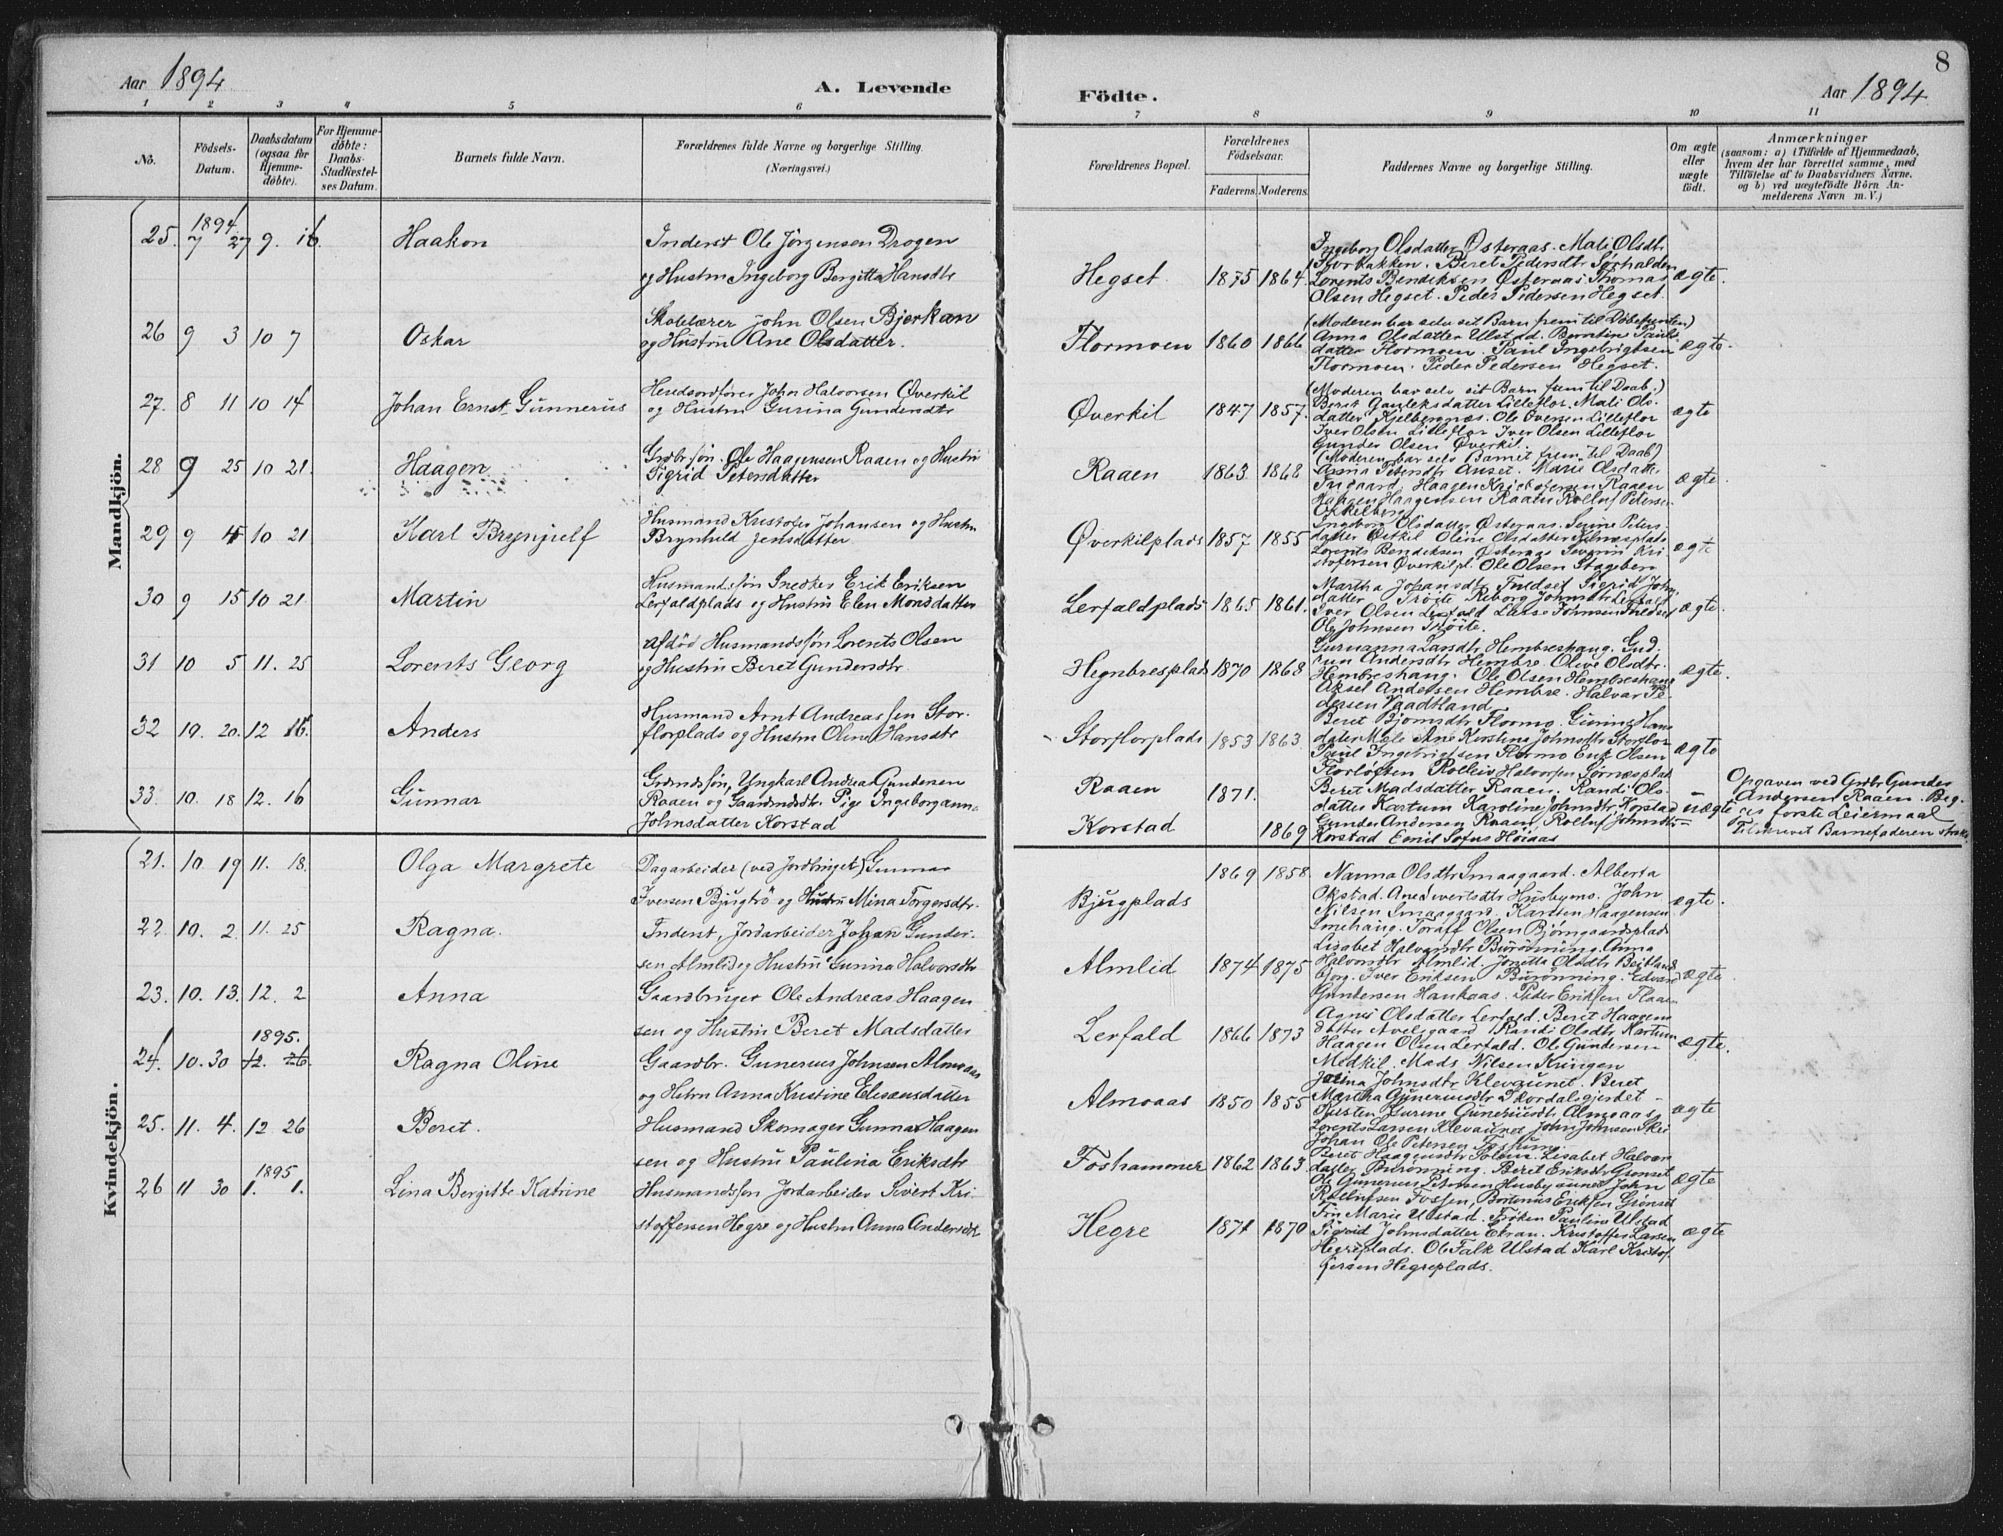 8
Aar 1894
A. Levende
Födte.
Aar 1894
1 2 3 4 5 6 7 8 9 10 11
No.
Födsels-
Datum.
Daabsdatum
(ogsaa for
Hjemme-
döbte).
For Hjemme-
döbte:
Daabs-
Stadfæstel-
ses Datum.
Barnets fulde Navn.
Forældrenes fulde Navne og borgerlige Stilling.
(Næringsvei.)
Forældrenes Bopæl.
Forældrenes
Födselsaar.
Faderens. Moderens.
Faddernes Navne og borgerlige Stilling.
Om ægte
eller
uægte
födt.
Anmærkninger
(saasom: a) i Tilfælde af Hjemmedaab,
hvem der har forrettet samme, med
Tilföielse af to Daabsvidners Navne.
og b) ved uægtefödte Börn An-
melderens Navn m. V.)
Mandkjön.
1894
25. 7 27 9. 16. Haakon
Inderst Ole Jörgensen Drogen
og Hustru Ingeborg Bergitte Hansdtr
Hegset 1875 1864.
Ingeborg Olsdatter Østeraas. Mali Olsdtr
Beret Pedersdtr Sørhalden
Lorents Bendiksen Østeraas Thomas
Olsen Hegset. Peder Pedersen Hegset.
ægte.
26 9 3 10 7 Oskar
Skolelærer John Olsen Bjerkan
og Hustru Ane Olsdatter.
Flormoen 1860 1866
(Moderen bar selv sit Barn frem til Døbefonten)
Anna Olsdatter Ulstad. Berntine Pauls
datter Flormoen. Paul Ingebrigtsen
Flormoen. Peder Pedersen Hegset.
ægte.
27. 8 11 10 14 Johan Ernst Gunnerus
Herredsordfører John Halvorsen Øverkil
og Hustru Gurina Gundersdtr
Øverkil 1847 1857.
(Moderen bar selv sit Barn frem til Daab.)
Beret Lilleflor. Mali Ols-
datter Kjelbergnæs. Ole Oversen Lilleflor
Iver Olsen Lilleflor Iver Olsen Lilleflor
Gunder Olsen Øverkil.
ægte
28 9 25 10 21. Haagen
Grdbr.søn. Ole Haagensen Raaen og Hustru
Sigrid Petersdatter
Raaen 1863. 1868
(Moderen bar selv Barnet frem til Daab)
Anna Petersdtr Anset. Marie Olsdatter
Haagen Kristofersen Raaen
Haagen Haagensen Raaen Rolluf Peters
ægte.
29 9 15 10 21 Karl Brynjulf
Husmand Kristofer Johansen og Hustru
Brynhild Jensdatter
Øverkilplads 1857 1855
Ingeborg Olsdatter Østeraas.
datter Østkil Oline Olsdatter
Lorents Bendiksen Østeraas Severin Kri
stofersen Øverkilpl. Ole Olsen
ægte
30 9 15 10 21. Martin
Husmandssøn Snedker Erik Eriksen
Lerfaldplads og Hustru Elen Monsdatter
Lerfaldplads 1865 1861.
Martha Johansdtr Fuldset Sigrid John
datter Trøite Johnsdtr Lerfald
Iver Olsen Lerfald Lasse Johnsen Fuldset
Ole Johnsen Trøite.
ægte.
31 10 5 11. 25 Lorents Georg
Afdød Husmandssøn Lorents Olsen
og Hustru Beret Gundersdtr.
Hembresplads 1870 1868
Larsdtr Hembreshaug. Gud
run Andersdtr Hembre. Olive Olsdtr.
Hembreshaug. Ole Olsen Hembreshaug
Aksel Andersen Hembre. Halvar Pe
dersen Vaadtland
ægte.
32 10. 20. 12 16. Anders
Husmand Arnt Andreassen Stor-
florplads og Hustru Oline Hansdtr
Storflorplads 1853 1863
Beret Bjørnsdtr Flormo. Hans
datter Ane Kerstine Johnsdtr Storflor
Paul Ingebrigtsen Flormo Erik Olsen
Florløften Halvorsen Sørnæsplads
ægte
33. 10. 18 12. 16 Gunnar
Grdmdssøn, Ungkarl Andreas Gundersen
Raaen og Gaardmdsdtr. Pige Ingeborg ann-
Johnsdatter Korstad
Raaen 1871.
Korstad 1869
Beret Madsdatter Raaen. Randi Ols-
datter Kartum Karoline Johnsdtr Korstad
Gunder Andersen Raaen, Rolluf Johnsen
Korstad Emil Sofus Høiaas
uægte
Opgaven ved Grdbr Gunder
Andersen Raaen. Beg-
ges første Leiermaal
Tilskrevet Barnefaderen
Kvindekjön.
21. 10. 19 11. 18. Olga Margrete
Dagarbeider (ved Jordbruget) Gunnar
Iversen Bjugtrö og Hustru Mina Torgersdtr.
Bjugplads 1869 1858.
Nanna Olsdtr Smaagaard. Alberta
Okstad. Ane Husbymo. John
Nilsen Smaagaard. Karsten Haagensen
Smehaug. Toralf Olsen Bjørngaardsplads
ægte.
22. 10. 2. 11. 25 Ragna.
Inderst, Jordarbeider Johan Gunder-
sen Almlid og Hustru Gurina Halvorsdtr
Almlid 1874 1875
Lisabet Halvorsdtr Burønning. Anna
Halvorsdtr Almlid. Jonetta Olsdtr Beitland
Iver Eriksen Burønning. Edvard
Gundersen Haukaas. Peder Eriksen Flaaen
ægte.
23. 10. 13. 12. 2 Anna
Gaardbruger Ole Andreas Haagen
sen og Hustru Beret Madsdatter
Lerfald 1866 1873
Agnes Olsdatter Lerfald. Beret Haagens
datter Avelsgaard Randi Olsdtr Kartum
Haagen Olsen Lerfald. Ole Gundersen
Medkil. Mads Nilsen Kringen
ægte.
1895.
24. 10. 30 12. 26. Ragna Oline
Gaardbr. Gunerius Johnsen Almoaas
og Hstru Anna Kristine Elisæusdatter
Almoaas 1850 1855
Johnsdtr Klevaunet. Beret
Martha Guneriusdtr Skordalsgjerdet
Kirsten Jørine Guneriusdtr Almoaas
Lorents Larsen Klevaunet John Johnsen Skei
Johan Ole Petersen
ægte
25. 11. 4. 12 26 Beret.
Husmand Skomager Gunnar Haagen
sen og Hustru Paulina Eriksdtr
Foshammer 1862 1863.
Beret Haagensdtr Lisabet Halvors
datter Burønning. Beret Eriksdtr Grønset
Ole Gunerius Petersen Husbyaunet John
Rollufsen Fossen, Bortinus Eriksen Grønset
ægte
1895
26 11 30 1. 1. Lina Bergitte Katrine
Husmandssøn Jordarbeider Sivert Kri
stoffersen Hegre og Hustru Anna Andersdtr
Hegre 1871 1870
Fru Marie Ulstad. Frøken Pauline Ulstad
Sigrid Johnsdatter Kristoffer Larsen
Hegreplads. Ole Falk Ulstad Karl Kristof
fersen Hegreplads.
ægte